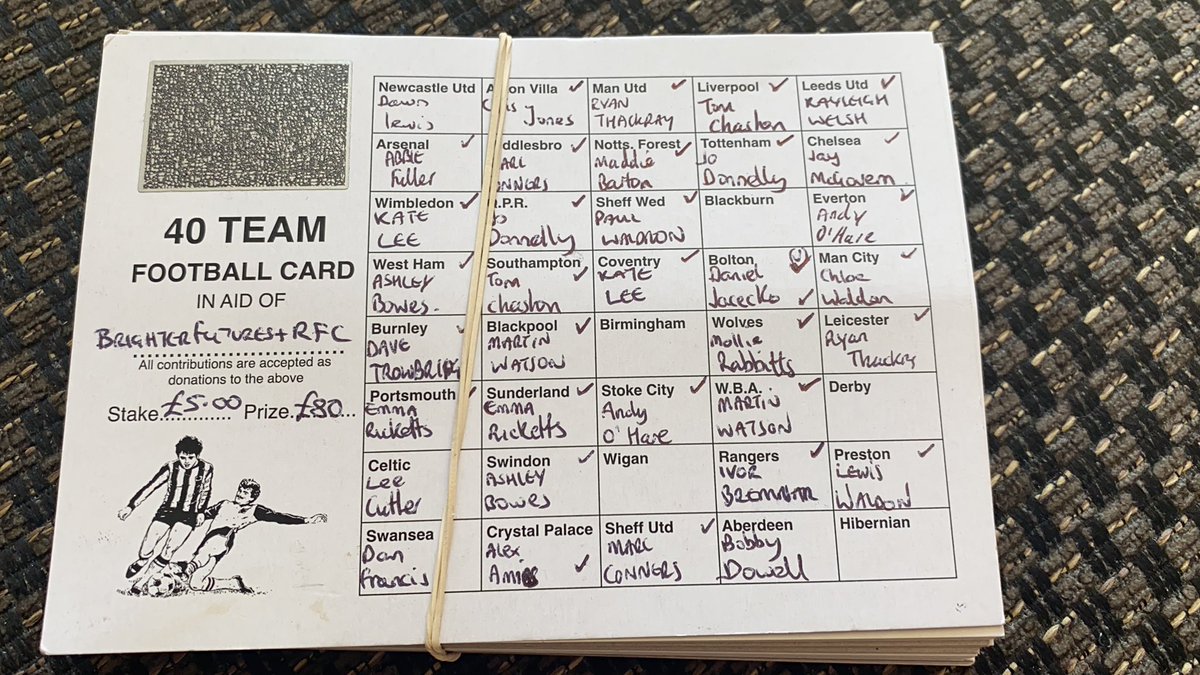 40 TEAM
FOOTBALL CARD
IN AID OF
BRIGHTER FUTURES + RFC
All contributions are accepted as
donations to the above
Stake £5.00 Prize £80
Newcastle Utd
Dawn
Lewis
on Villa ✓
Jones
Man Utd ✓
RYAN
THACKRAY
Liverpool ✓
Tom
Chaston
Leeds Utd ✓
RAYLEIGH
WELSH
Arsenal ✓
ABBIE
Fuller
ddlesbro ✓
ARL
ONNERS
Notts. Forest ✓
Maddie
Barton
Tottenham ✓
Jo
Donnelly
Chelsea ✓
Jay
McGovern
Wimbledon ✓
KATE
LEE
.P.R. ✓
Jo
Donnelly
Sheff Wed ✓
PAUL
WALDRON
Blackburn
Everton ✓
Andy
O'Hare
West Ham ✓
ASHLEY
Bowes.
Southampton ✓
Tom
Chaston
Coventry ✓
KATE
LEE
Bolton ✓
Daniel
Jacecko ✓
Man City ✓
Chloe
Waldon
Burnley ✓
DAVE
TROWBRIDG
Blackpool ✓
MARTIN
WATSON
Birmingham
Wolves ✓
Mollie
Rabbitts
Leicester ✓
Ryan
Thackry
Portsmouth ✓
EMMA
Ricketts
Sunderland ✓
EMMA
Ricketts
Stoke City ✓
Andy
O'Hare
W.B.A. ✓
MARTIN
WATSON
Derby
Celtic
Lee
Cutler
Swindon ✓
ASHLEY
BOWES
Wigan
Rangers ✓
IVOR
Preston ✓
LEWIS
WALDON
Swansea
Dan
Francis
Crystal Palace
Alex
Amies ✓
Sheff Utd ✓
MARC
CONNERS
Aberdeen
Bobby
Dowell
Hibernian